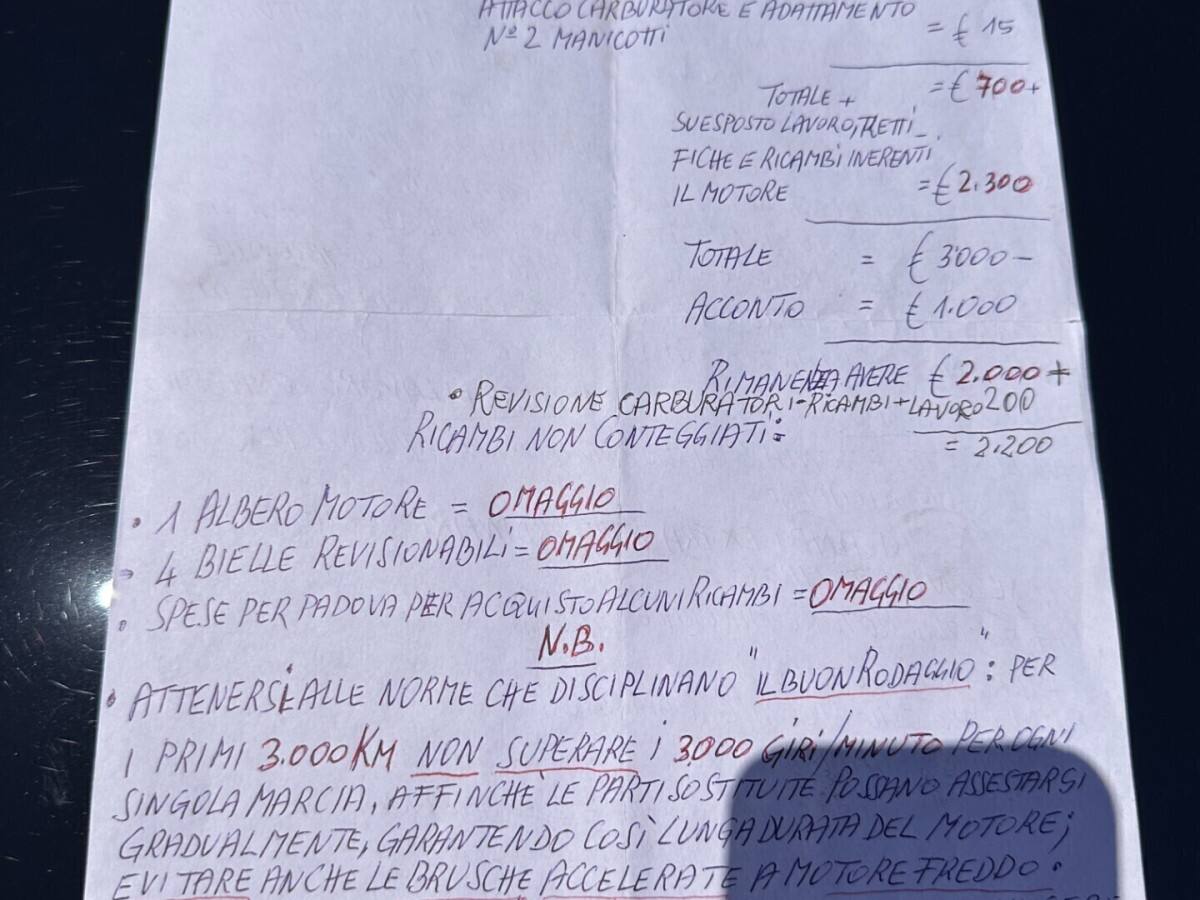 ATTACCO CARBURATORE E ADATTAMENTO
N° 2 MANICOTTI = € 15
TOTALE + = € 700+
SUESPOSTO LAVORO, RETTI-
FICHE E RICAMBI INERENTI
IL MOTORE = € 2.300
TOTALE = € 3000 -
ACCONTO = € 1.000
RIMANENZA AVERE € 2.000 +
• REVISIONE CARBURATORI - RICAMBI + LAVORO 200
RICAMBI NON CONTEGGIATI: = 2.200
• 1 ALBERO MOTORE = OMAGGIO
• 4 BIELLE REVISIONABILI = OMAGGIO
• SPESE PER PADOVA PER ACQUISTO ALCUNI RICAMBI = OMAGGIO
N.B.
• ATTENERSI ALLE NORME CHE DISCIPLINANO "IL BUON RODAGGIO": PER
I PRIMI 3.000 KM NON SUPERARE I 3000 GIRI/MINUTO PER OGNI
SINGOLA MARCIA, AFFINCHÈ LE PARTI SOSTITUITE POSSANO ASSESTARSI
GRADUALMENTE, GARANTENDO COSÌ LUNGA DURATA DEL MOTORE;
EVITARE ANCHE LE BRUSCHE ACCELERATE A MOTORE FREDDO.